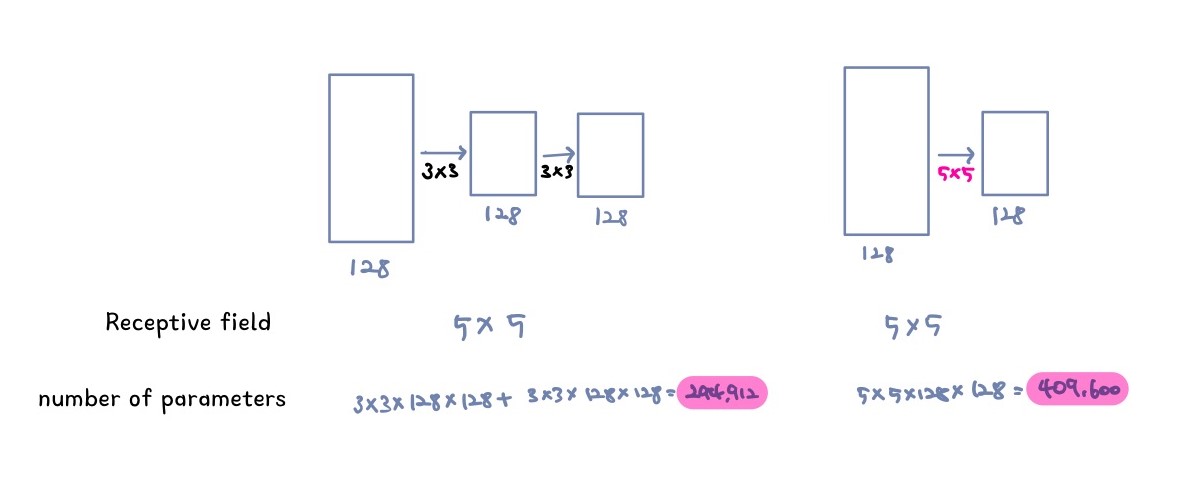 3×3 3×3 5×5
128 128 128
128 128
Receptive field 5×5 5×5
number of parameters 3×3×128×128+ 3×3×128×128= 294,912 5×5×128×128= 409.600